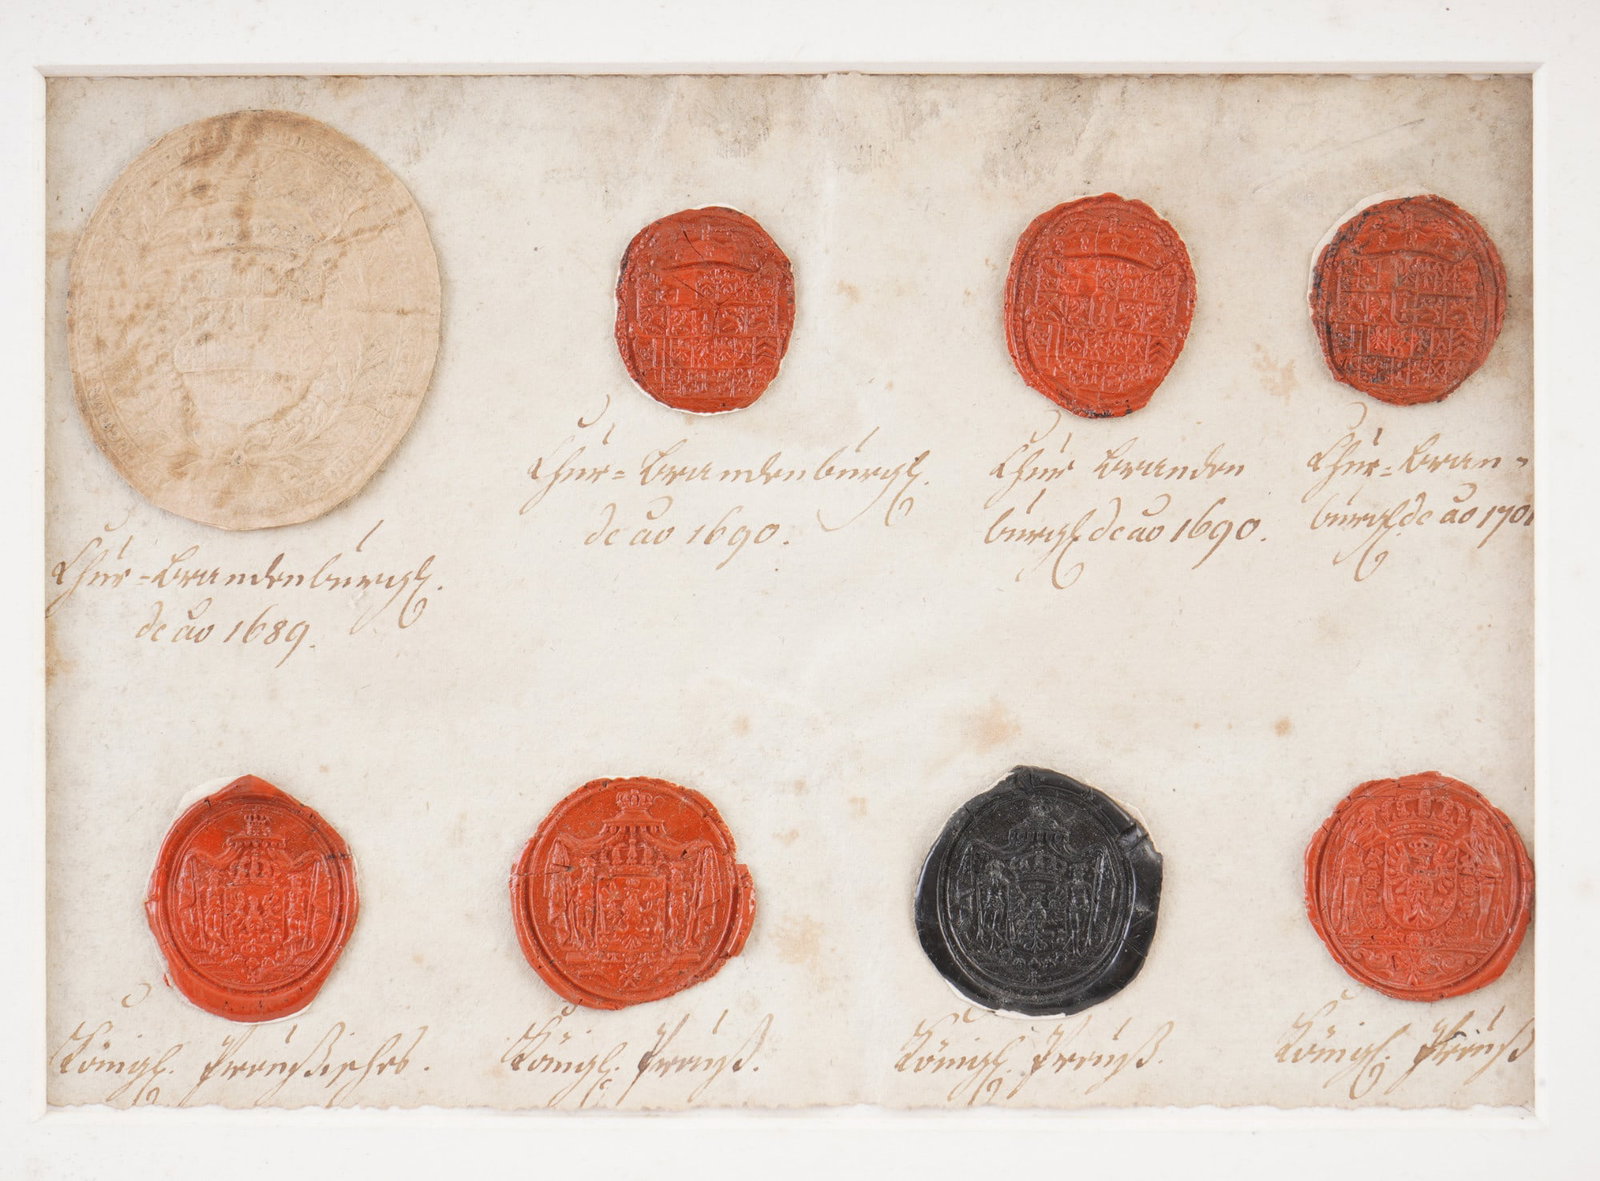 Chúr-Brandenbúrgl.
de ao 1689.
Chúr-Brandenbúrgl.
de ao 1690.
Chúr Branden
búrgl de ao 1690.
Chúr-Bran-
búrgl. de ao 1701
Königl. Preúßisches.
Königl. Preúß.
Königl. Preúß.
Königl. Preúß